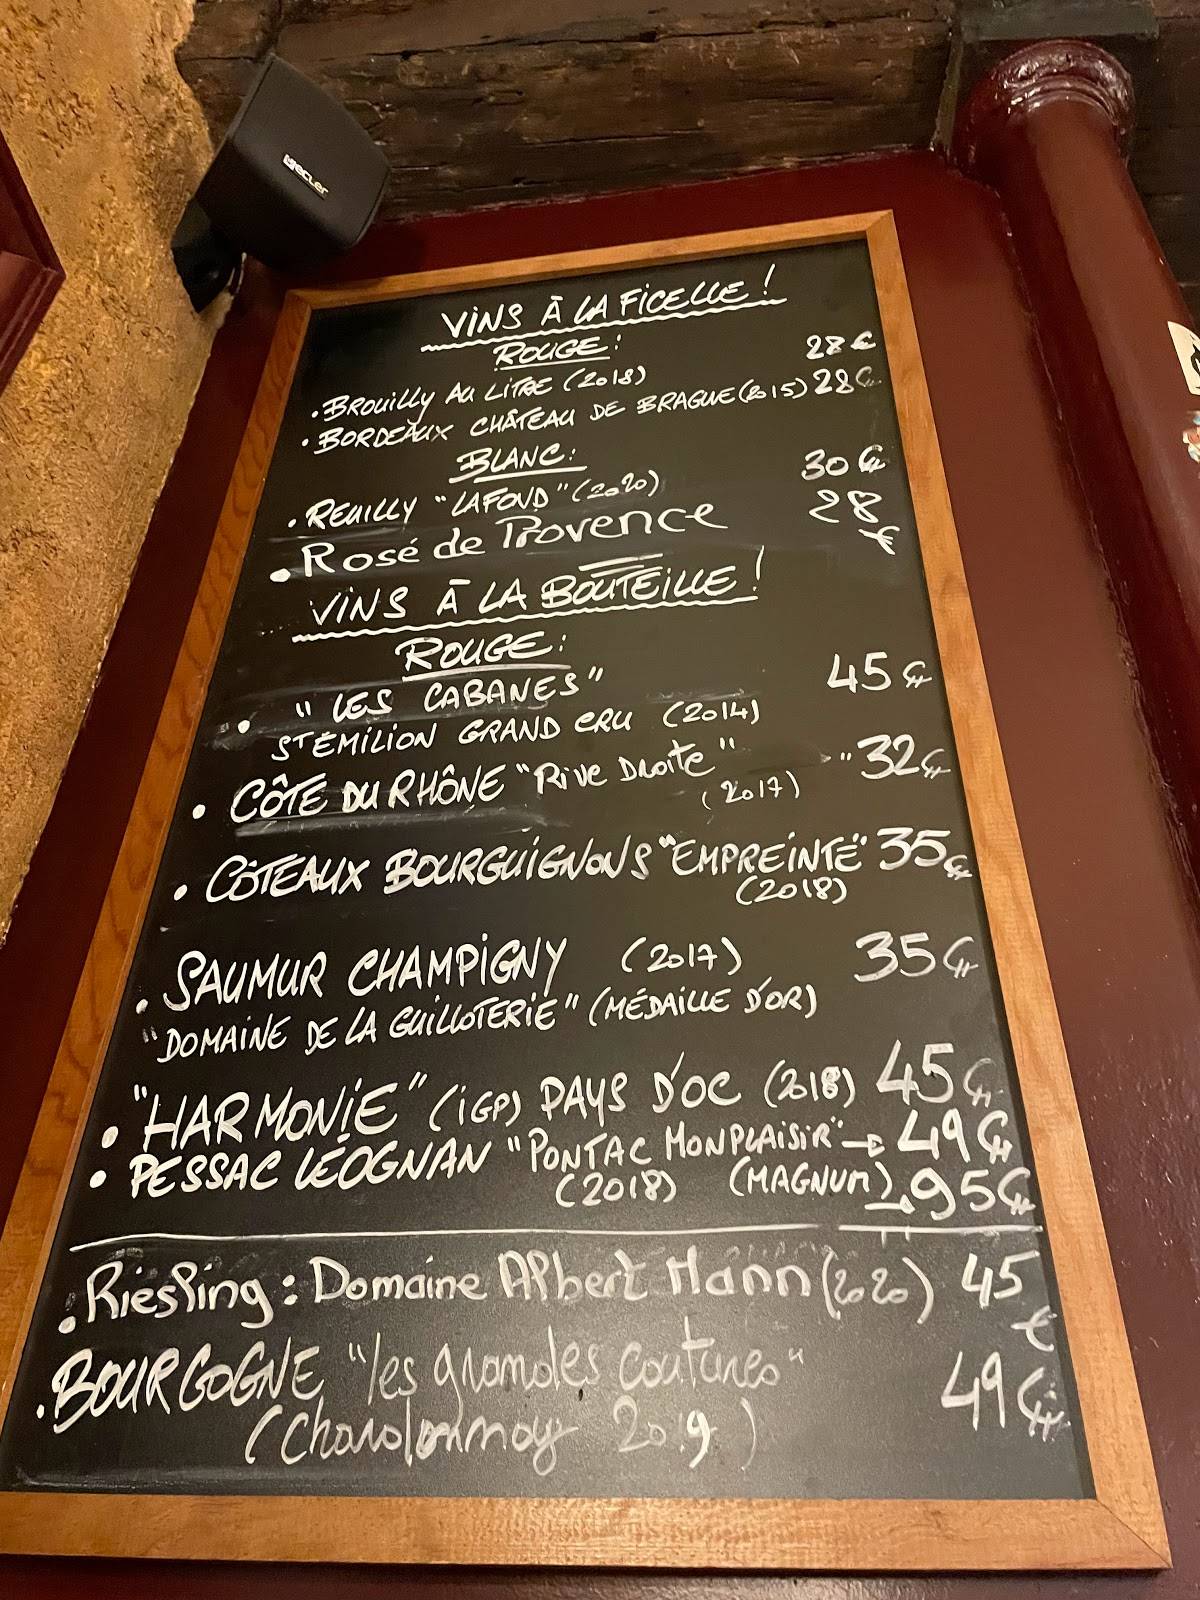 ECLER
VINS À LA FICELLE !
ROUGE :
. BROUILLY AU LITRE (2018) 28 €
. BORDEAUX CHÂTEAU DE BRAGUE (2015) 28 €
BLANC :
. REUILLY "LAFOND" (2020) 30 €
. Rosé de Provence 28 €
VINS À LA BOUTEILLE !
ROUGE :
. "LES CABANES" 45 €
ST ÉMILION GRAND CRU (2014)
. CÔTE DU RHÔNE "Rive Droite" 32 €
(2017)
. CÔTEAUX BOURGUIGNONS "EMPREINTE" 35 €
(2018)
. SAUMUR CHAMPIGNY (2017) 35 €
"DOMAINE DE LA GUILLOTERIE" (MÉDAILLE D'OR)
. "HARMONIE" (IGP) PAYS D'OC (2018) 45 €
. PESSAC LÉOGNAN "PONTAC MONPLAISIR" → 49 €
(2018) (MAGNUM) → 95 €
. Riesling : Domaine Albert Mann (2020) 45 €
. BOURGOGNE "les grandes coutures" 49 €
(Chardonnay 2019)